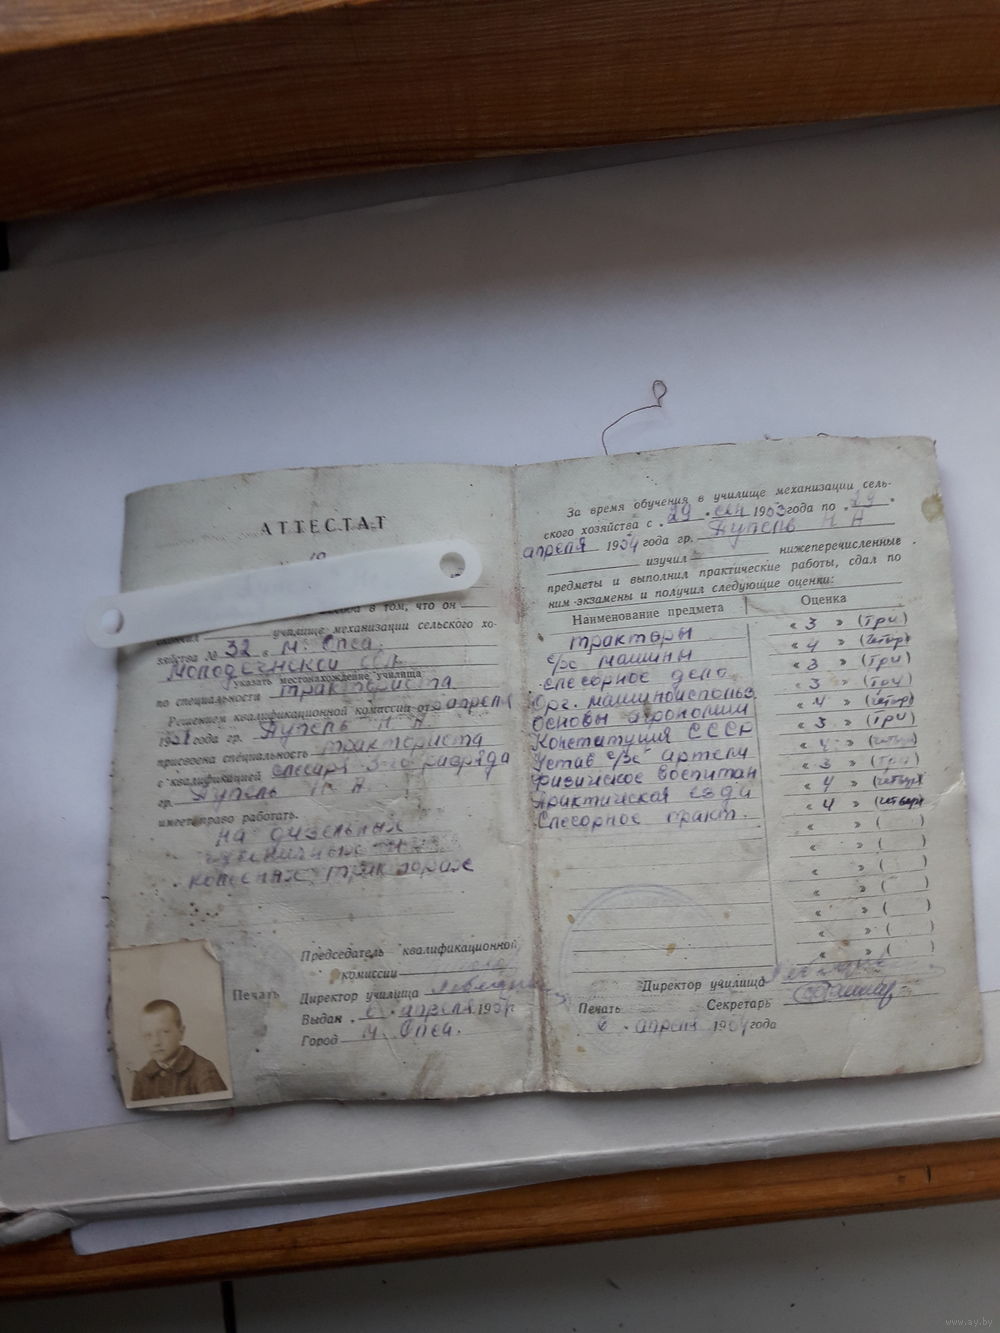 АТТЕСТАТ
в том, что он
училище механизации сельского хо-
зяйства № 32 в м. Опса
Молодечнской обл.
указать местонахождение училища
по специальности тракториста
Решением квалификационной комиссии от апреля
195 года гр. Н А
присвоена специальность тракториста
с квалификацией слесаря 3-го разряда
гр.
имеет право работать.
на дизельных
колесных тракторах
Председатель квалификационной
комиссии
Печать
Директор училища
Выдан апреля 195
Город м. Опса.
За время обучения в училище механизации сель-
ского хозяйства с 29 сен 1953 года по 29
апреля 1954 года гр. Н А
изучил нижеперечисленные
предметы и выполнил практические работы, сдал по
ним экзамены и получил следующие оценки:
Наименование предмета Оценка
тракторы « 3 » (три)
с/х машины « 4 » (четыр)
слесорное дело « 3 » (три)
Орг. машиноиспольз « 3 » (три)
Основы агрономии « 4 » (четыр)
Конституция СССР « 3 » (три)
Устав с/х артели « 4 » (четыр)
физическое воспитан « 3 » (три)
практическая езда « 4 » (четыр)
Слесорное практ. « 4 » (четыр)
« » ( )
« » ( )
« » ( )
« » ( )
« » ( )
« » ( )
« » ( )
Директор училища
Печать Секретарь
6 апреля 1954 года
www.ay.by